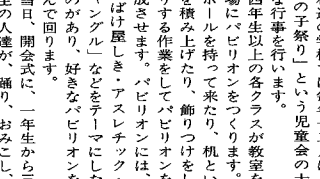 の子祭り」という児童会の大
な行事を行います。
四年生以上の各クラスが教室を
場にパビリオンをつくります。
ボールを持って来たり、机とい
を積み上げたり、飾りつけをし
りする作業をしてパビリオンを
成させます。パビリオンには、
ばけ屋しき・アスレチック・
ャングル」などをテーマにした
のがあり、好きなパビリオンを
んで回ります。
当日、開会式に、一年生から三
の人達が、踊り、おみこし、